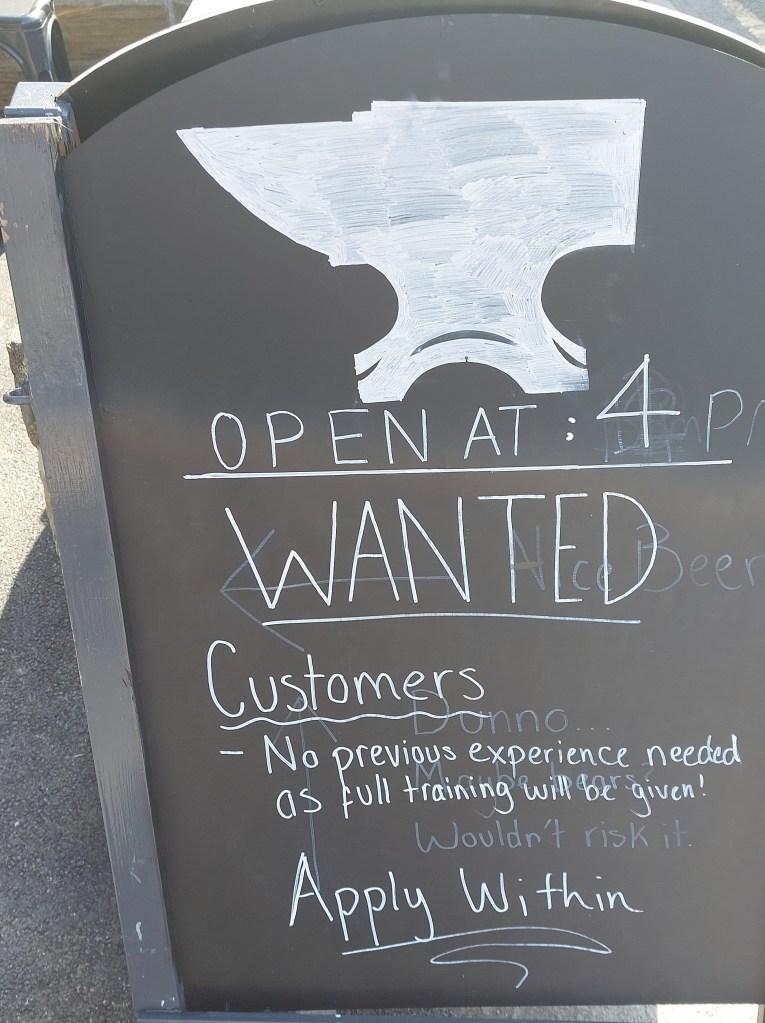 OPEN AT : 4 PM
WANTED
Nice Beer
Customers
Dunno...
- No previous experience needed
Maybe bears?
as full training will be given!
Wouldn't risk it.
Apply Within